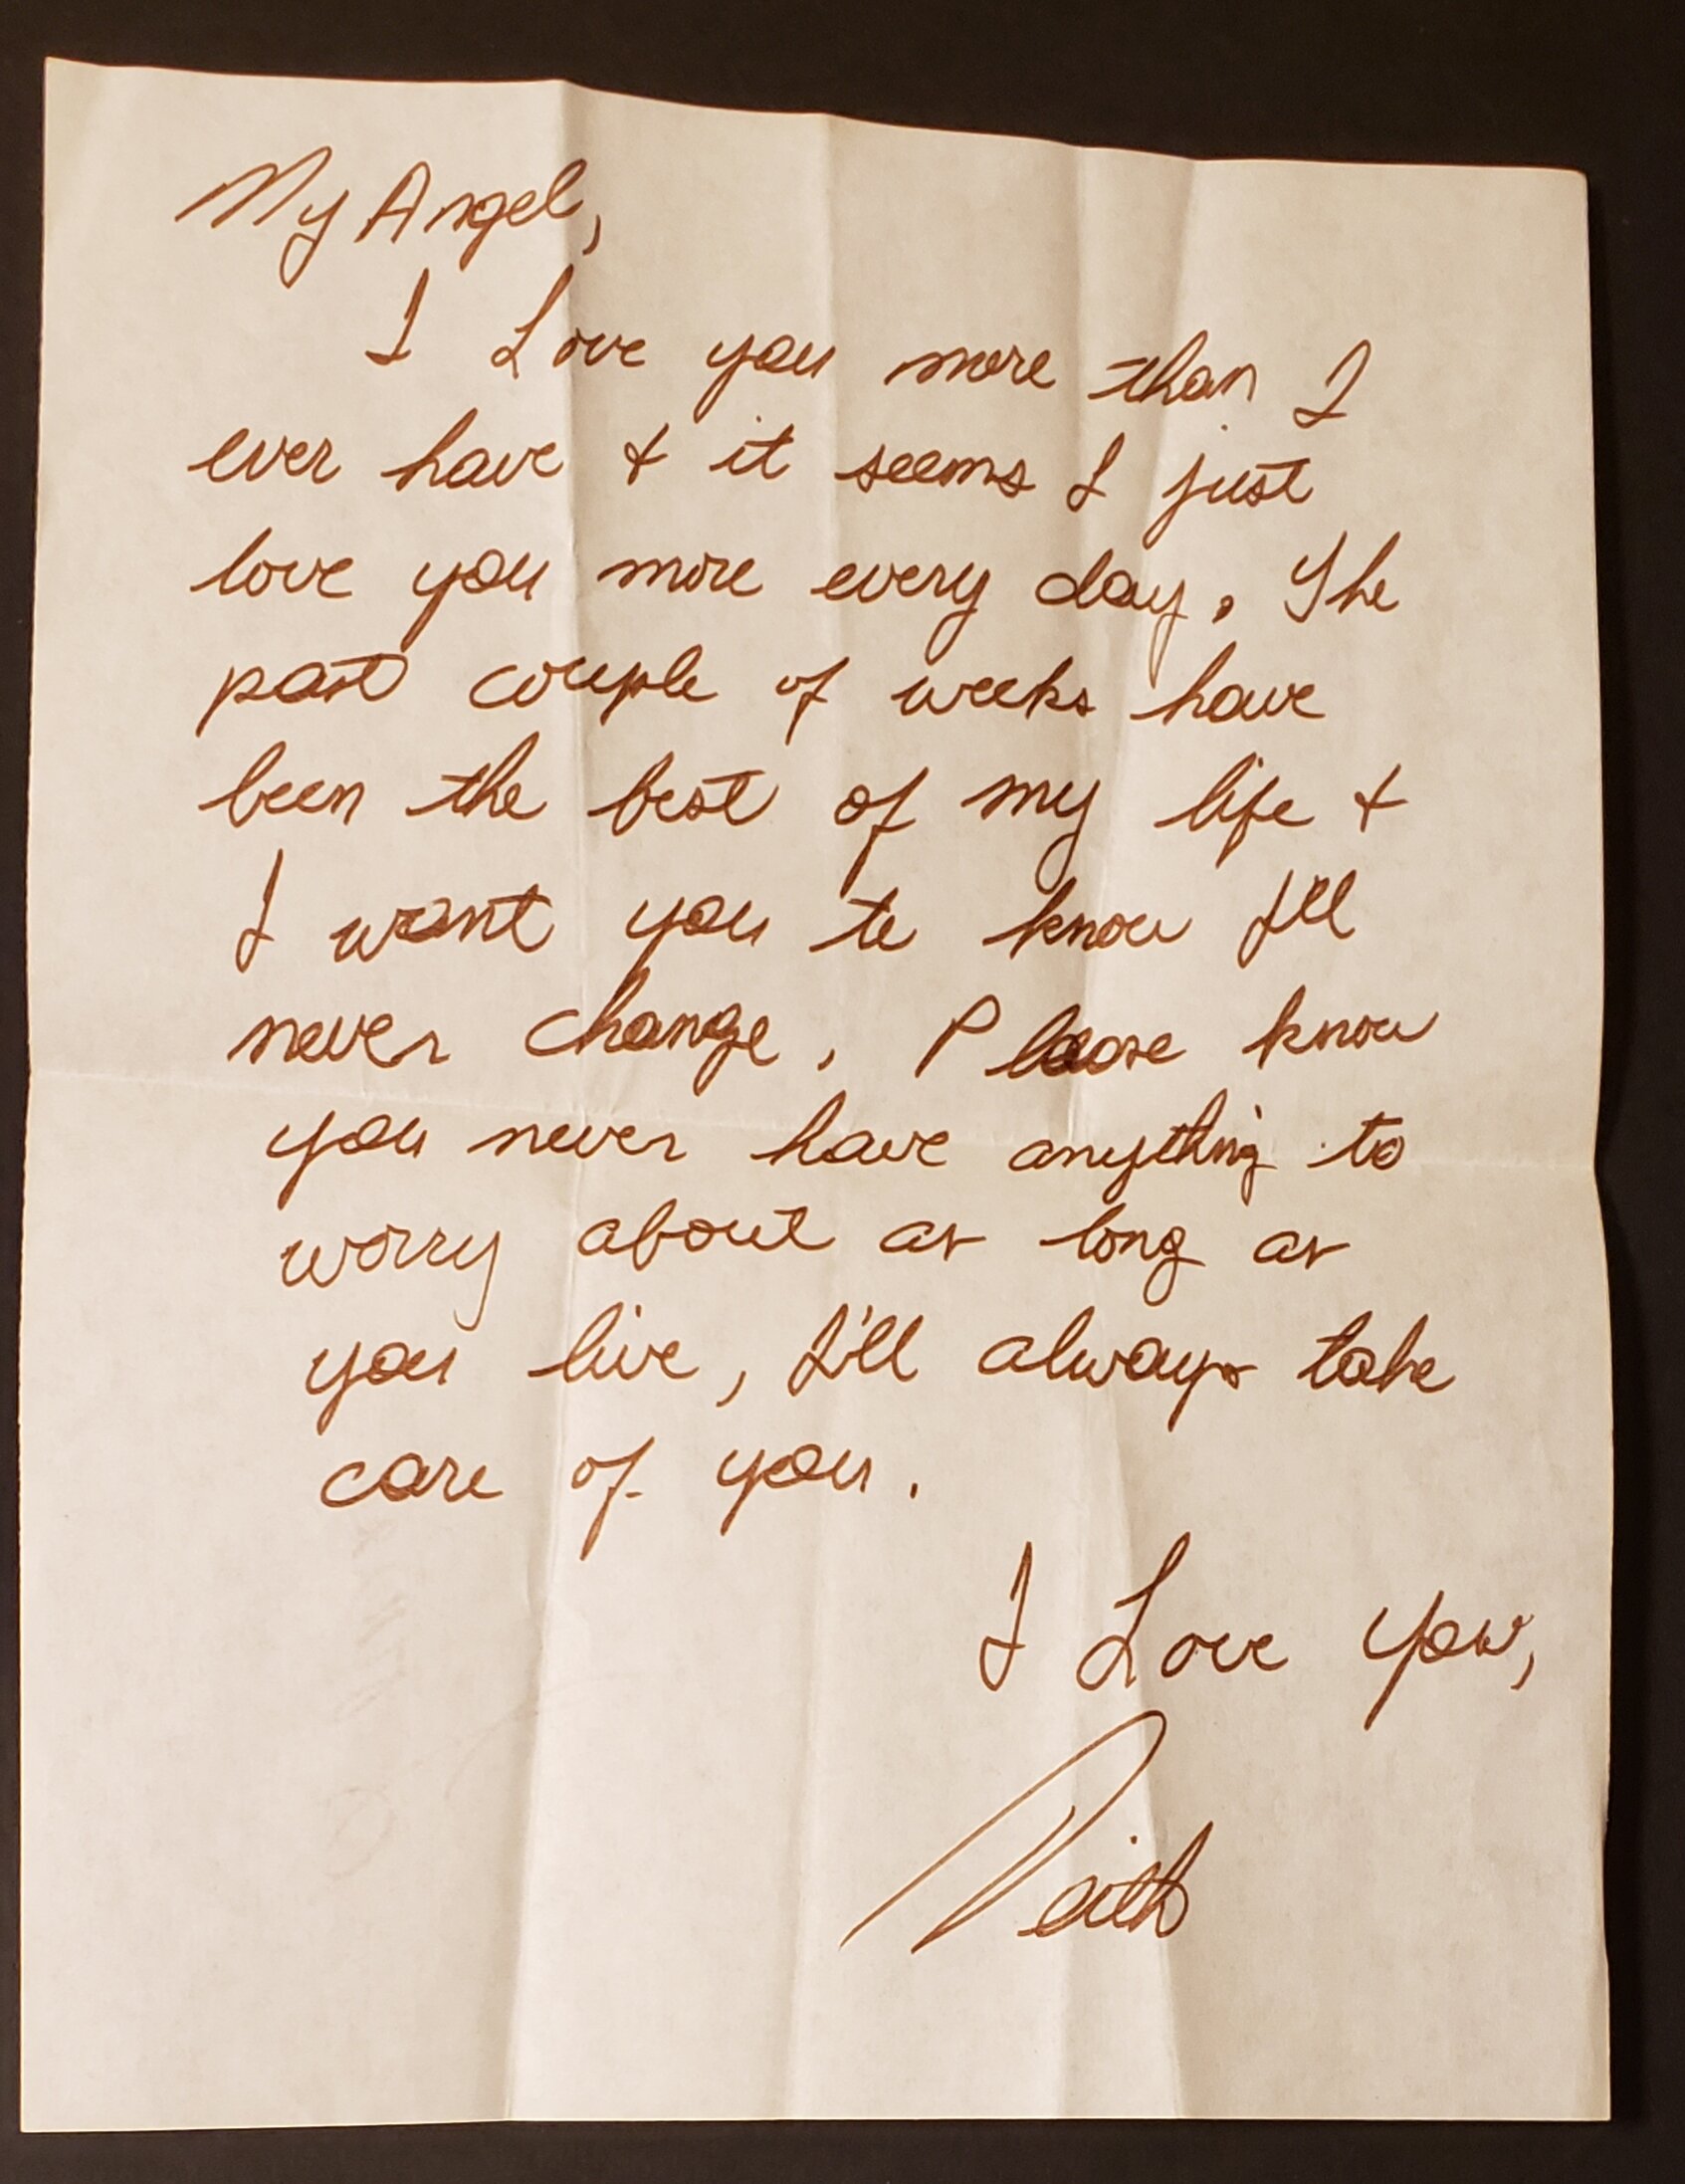 My Angel,
I Love you more than I
ever have & it seems I just
love you more every day. The
past couple of weeks have
been the best of my life &
I want you to know I'll
never change. Please know
you never have anything to
worry about as long as
you live, I'll always take
care of you.
I Love You,
Keith